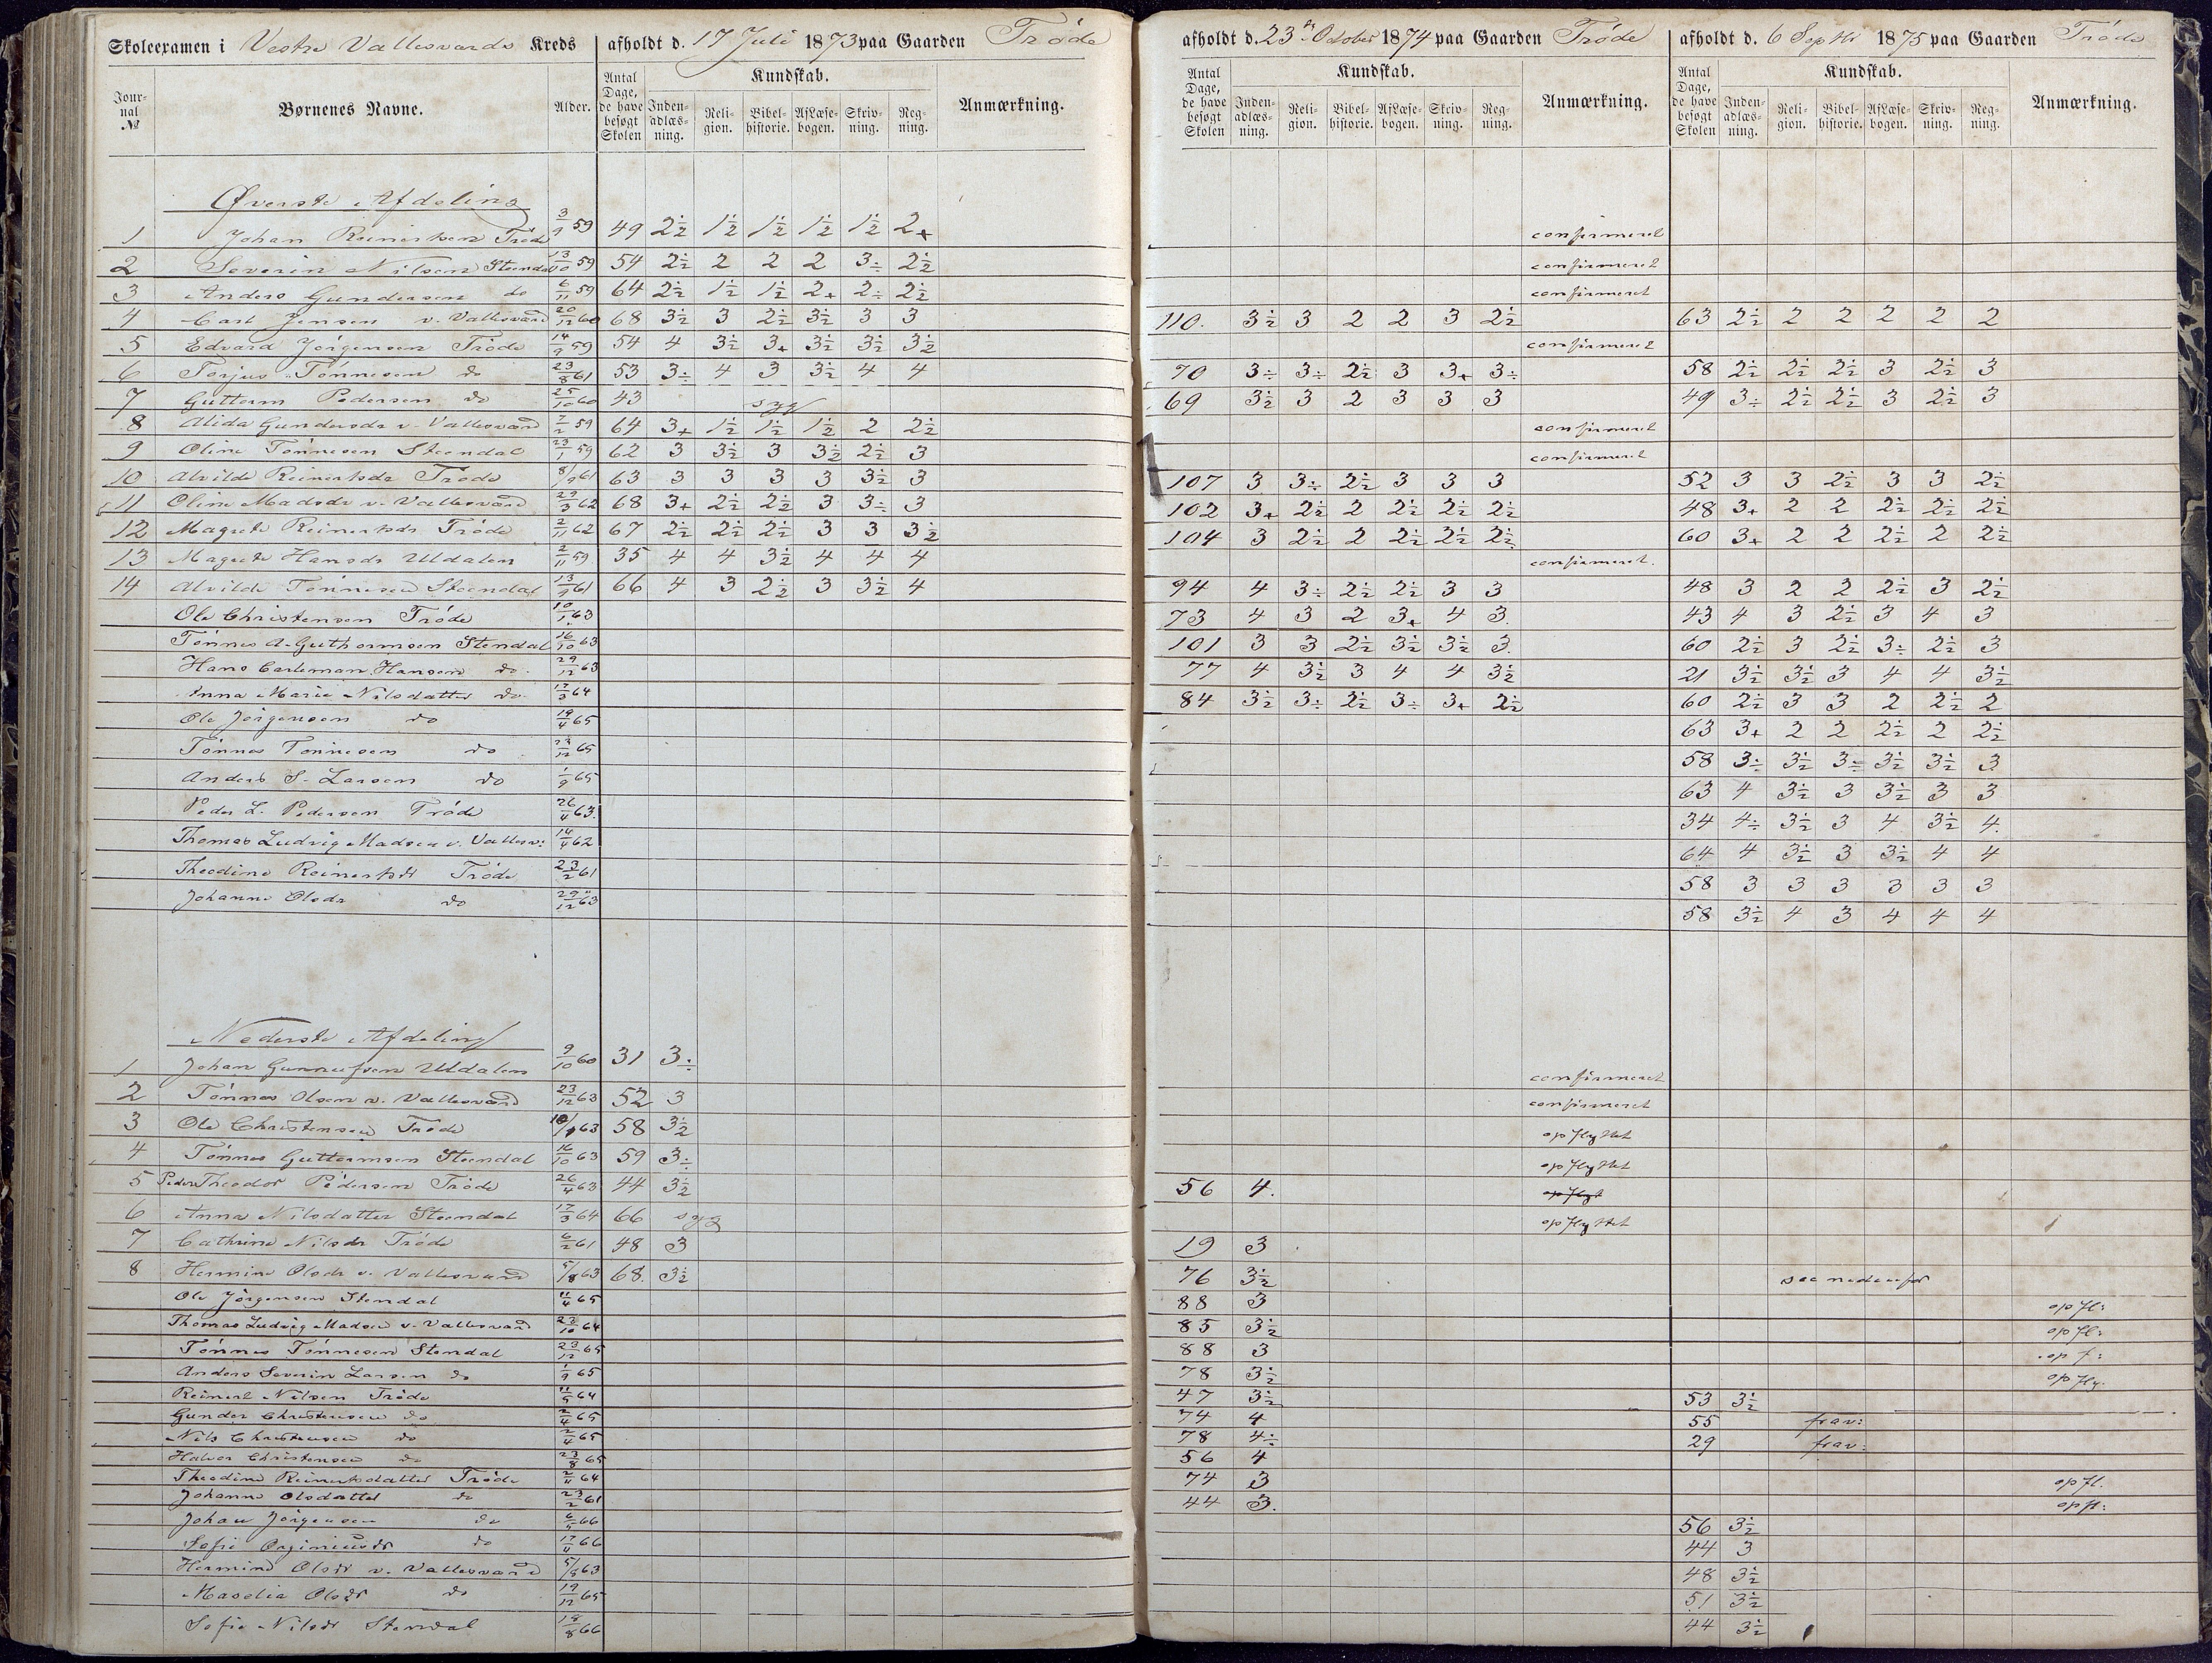 Skoleexamen i Vestre Vallesværds Kreds afholdt d. 17 Juli 1873 paa Gaarden Tróde
afholdt d. 23de October 1874 paa Gaarden Tróde
afholdt d. 6 Septbr 1875 paa Gaarden Tróde
Journal № Børnenes Navne. Alder. Antal Dage, de have besøgt Skolen Kundskab. Indenadlæsning. Religion. Bibelhistorie. AfLæsebogen. Skrivning. Regning. Anmærkning.
Antal Dage, de have besøgt Skolen Kundskab. Indenadlæsning. Religion. Bibelhistorie. AfLæsebogen. Skrivning. Regning. Anmærkning.
Antal Dage, de have besøgt Skolen Kundskab. Indenadlæsning. Religion. Bibelhistorie. AfLæsebogen. Skrivning. Regning. Anmærkning.
Øverste Afdeling
1 Johan Reinertsen Tróde 3/9 59 49 2½ 1½ 1½ 1½ 1½ 2+ confirmeret
2 Severin Nilsen Steendal 13/10 59 54 2½ 2 2 2 3÷ 2½ confirmeret
3 Anders Gundersen do 6/11 59 64 2½ 1½ 1½ 2+ 2÷ 2½ confirmeret
4 Carl Jensen v. Vallesværd 20/12 60 68 3½ 3 2½ 3½ 3 3 110. 3½ 3 2 2 3 2½ 63 2½ 2 2 2 2 2
5 Edvard Jörgensen Tróde 14/9 59 54 4 3½ 3+ 3½ 3½ 3½ confirmeret
6 Torjus Tönnesen do 23/8 61 53 3÷ 4 3 3½ 4 4 70 3÷ 3÷ 2½ 3 3+ 3÷ 58 2½ 2½ 2½ 3 2½ 3
7 Guttorm Pedersen do 25/10 60 43 syg 69 3½ 3 2 3 3 3 49 3÷ 2½ 2½ 3 2½ 3
8 Alida Gundersdr v. Vallesværd 7/2 59 64 3+ 1½ 1½ 1½ 2 2½ confirmeret
9 Oline Tönnesen Steendal 23/1 59 62 3 3½ 3 3½ 2½ 3 confirmeret
10 Alvilde Reinertsdr Tróde 8/9 61 63 3 3 3 3 3½ 3 107 3 3÷ 2½ 3 3 3 52 3 3 2½ 3 3 2½
11 Oline Madsdr v. Vallesværd 29/3 62 68 3+ 2½ 2½ 3 3÷ 3 102 3+ 2½ 2 2½ 2½ 2½ 48 3+ 2 2 2½ 2½ 2½
12 Magrete Reinertsdr Tróde 2/11 62 67 2½ 2½ 2½ 3 3 3½ 104 3 2½ 2 2½ 2½ 2½ 60 3+ 2 2 2½ 2 2½
13 Magrete Hansdr Uldalen 2/11 59 35 4 4 3½ 4 4 4 confirmeret.
14 Alvilde Tönnesen Steendal 13/9 61 66 4 3 2½ 3 3½ 4 94 4 3÷ 2½ 2½ 3 3 48 3 2 2 2½ 3 2½
Ole Christensen Tróde 10/1 63 73 4 3 2 3+ 4 3. 43 4 3 2½ 3 4 3
Tönnes A. Guthormsen Stendal 16/10 63 101 3 3 2½ 3½ 3½ 3. 60 2½ 3 2½ 3÷ 2½ 3
Hans Carleman Hansen do. 29/12 63 77 4 3½ 3 4 4 3½ 21 3½ 3½ 3 4 4 3½
Anna Marie Nilsdatter do. 17/3 64 84 3½ 3÷ 2½ 3÷ 3+ 2½ 60 2½ 3 3 2 2½ 2
Ole Jörgensen do 19/4 65 63 3+ 2 2 2½ 2 2½
Tönnes Tönnesen do 23/12 65 58 3÷ 3½ 3÷ 3½ 3½ 3
Anders S. Larsen do 1/9 65 63 4 3½ 3 3½ 3 3
Peder L. Pedersen Tróde 26/4 63. 34 4÷ 3½ 3 4 3½ 4.
Thomas Ludvig Madsen v. Vallesv: 14/4 62 64 4 3½ 3 3½ 4 4
Theodine Reinertsdt Tróde 23/2 61 58 3 3 3 3 3 3
Johanne Olsdr do 29/12 63 58 3½ 4 3 4 4 4
Nederste Afdeling
1 Johan Gunnufsen Uldalen 9/10 60 31 3÷ confirmeret
2 Tönnes Olsen v. Vallesværd 23/12 63 52 3 confirmeret
3 Ole Christensen Tróde 10/1 63 58 3½ opflyttet
4 Tönnes Guttormsen Steendal 16/10 63 59 3÷ opflyttet
5 Peder Theodor Pedersen Tróde 26/4 63 44 3½ 56 4. opflyt
6 Anna Nilsdatter Steendal 17/3 64 66 syg opflyttet
7 Cathrine Nilsdr Tróde 6/2 61 48 3 19 3
8 Hermine Olsdr v. Vallesværd 5/8 63 68. 3½ 76 3½ see nedenfor
Ole Jörgensen Stendal 11/4 65 88 3 opfl:
Thomas Ludvig Madsen v. Vallesværd 23/10 64 85 3½ opfl:
Tönnes Tönnesen Stendal 23/12 65 88 3 opf:
Anders Severin Larsen do 1/9 65 78 3½ opfly.
Reinert Nilsen Tróde 11/5 64 47 3½ 53 3½
Gunder Christensen do 2/4 65 74 4 55 frav:
Nils Christensen do 2/4 65 78 4÷ 29 frav:
Halvor Christensen do 23/8 65 56 4
Theodine Reinertsdatter Tróde 2/4 64 74 3 opfl.
Johanne Olsdatter do 23/2 61 44 3. opfl:
Johan Jörgensen do 6/5 66 56 3½
Sofie do 17/4 66 44 3
Hermine Olsdr v. Vallesværd 5/8 63 48 3½
Maselia Olsdr do 19/12 65 51 3½
Sofie Nilsdr Stendal 18/8 66 44 3½